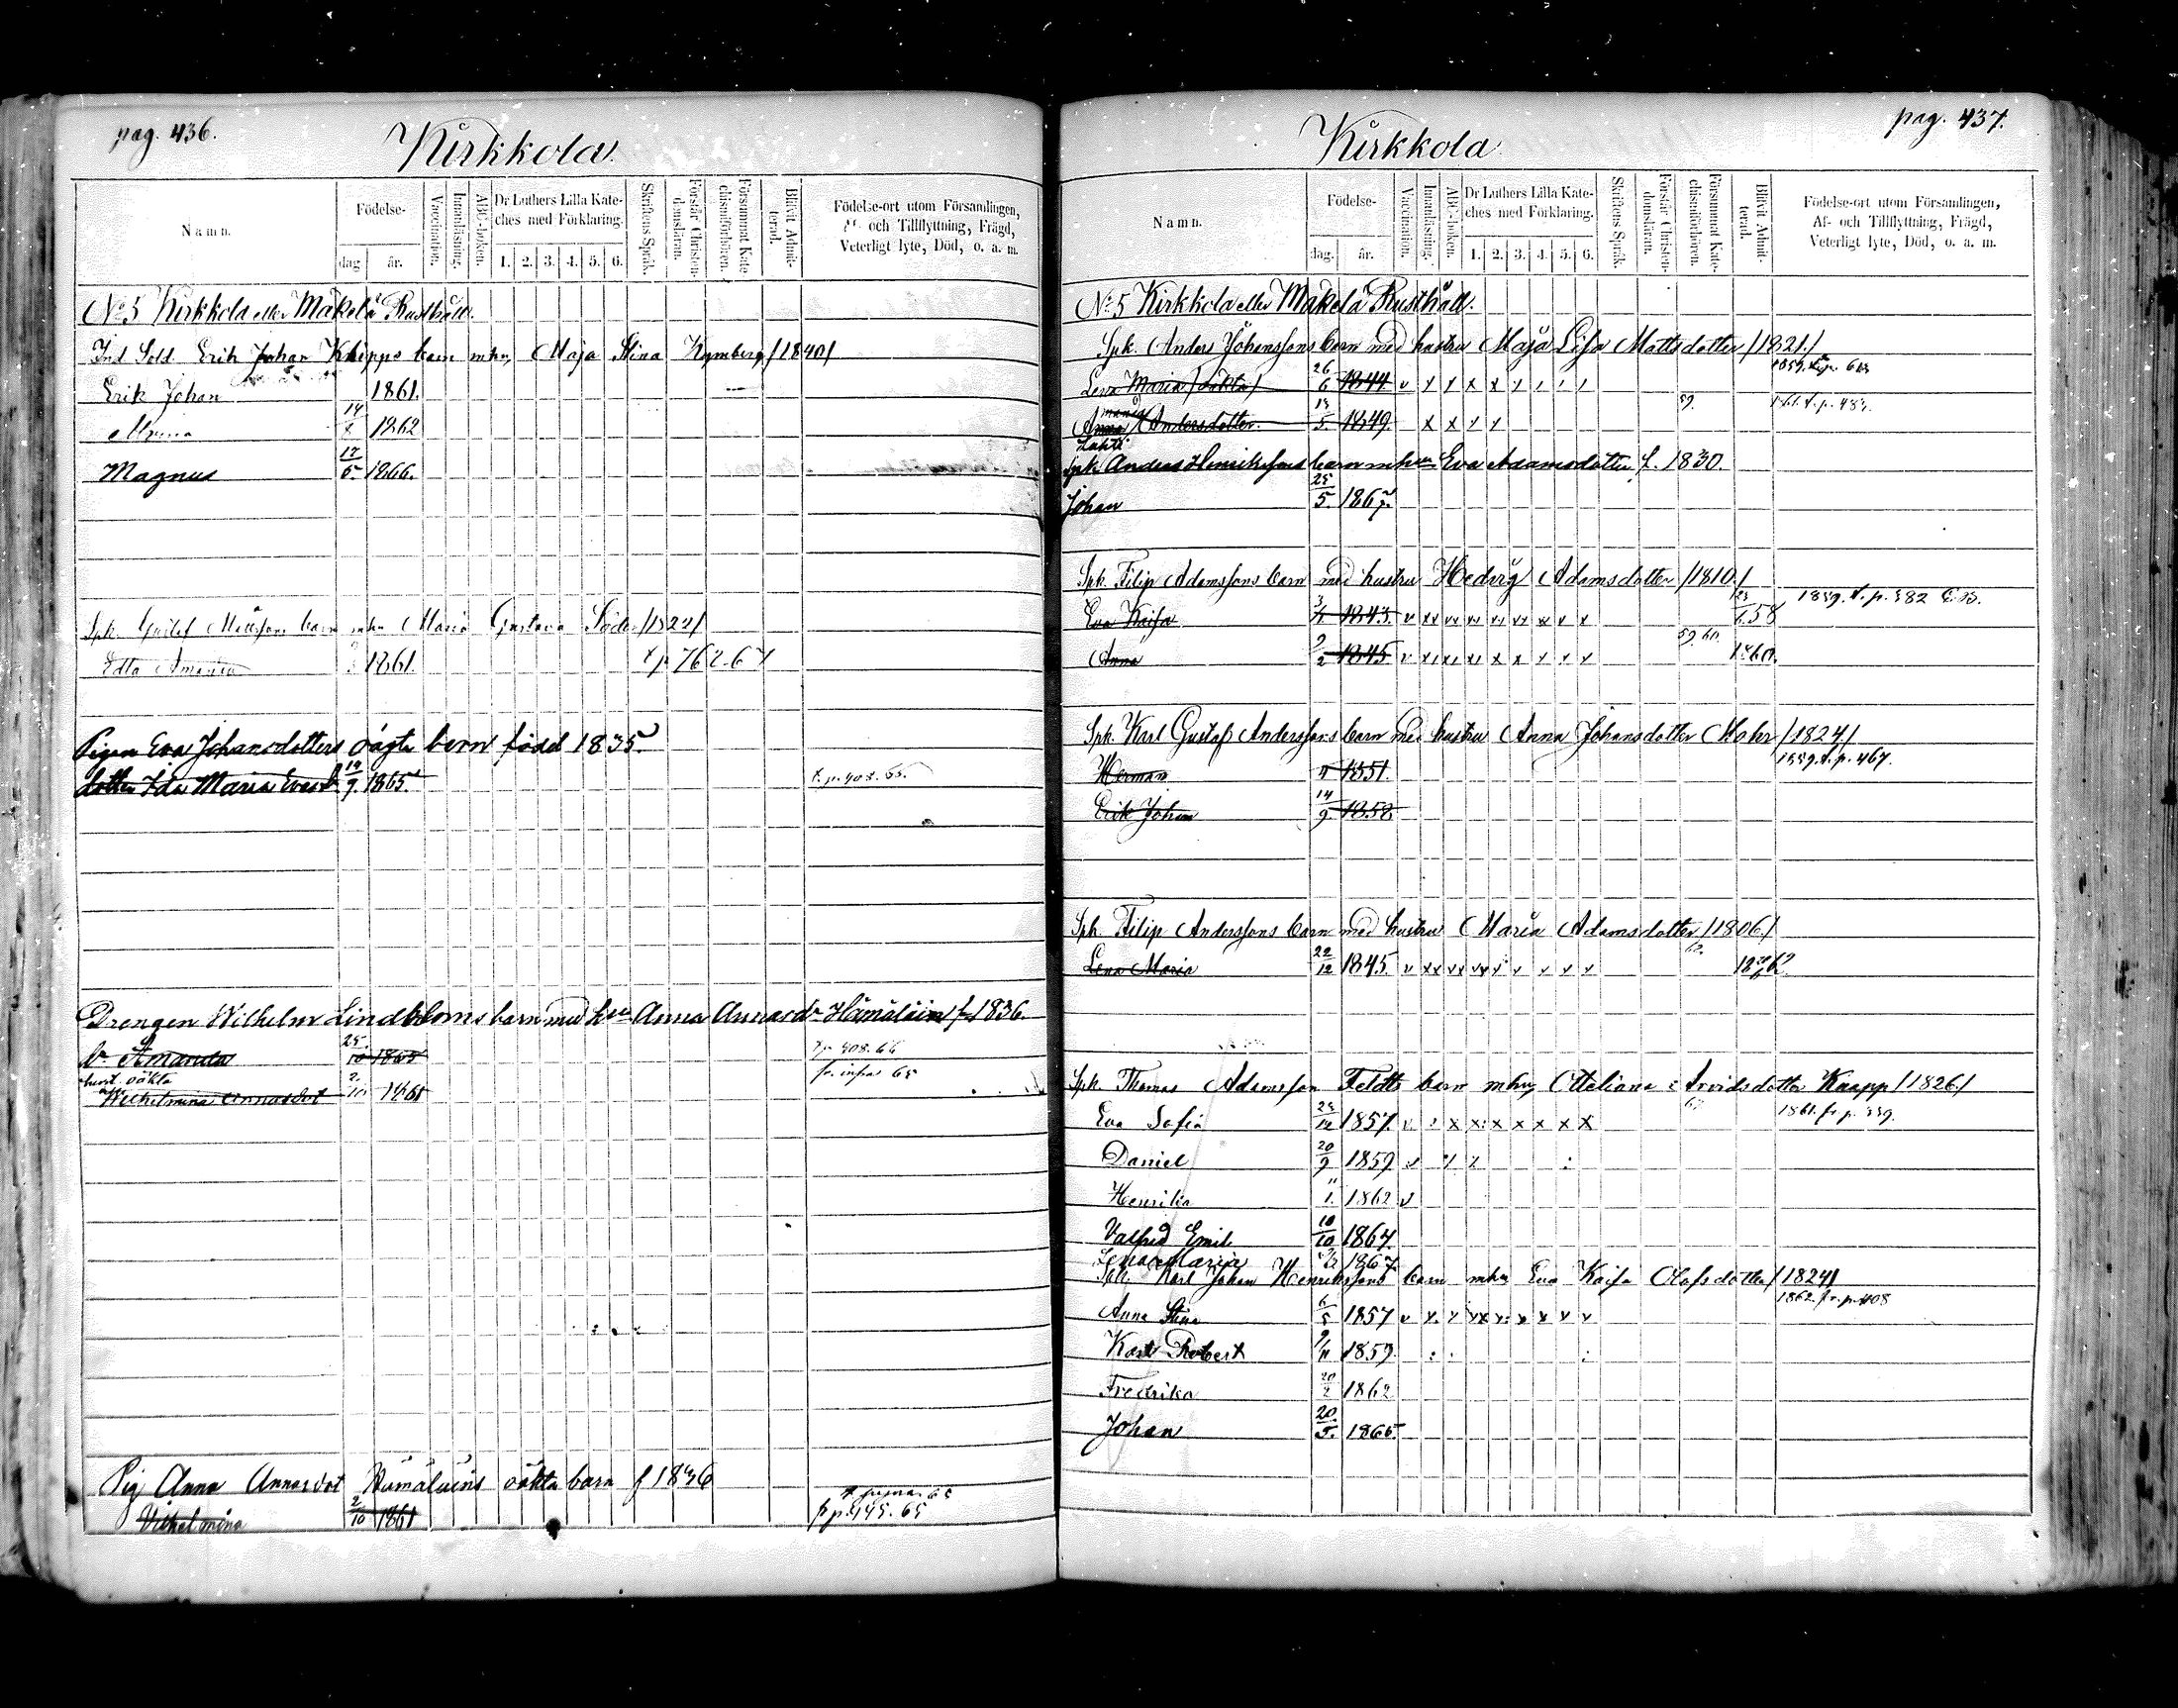 pag. 436.
Kirkkola.
Namn.
Födelse-
dag
år.
Vaccination.
Innanläsning.
ABC-boken.
Dr Luthers Lilla Kate-
ches med Förklaring.
1. 2. 3. 4. 5. 6.
Skriftens Språk.
Förstår Christen-
domsläran.
Försummat Kate-
chismiförhören.
Blifvit Admit-
terad.
Födelse-ort utom Församlingen,
Af- och Tillflyttning, Frägd,
Veterligt lyte, Död, o. a. m.
No 5 Kirkkola eller Mäkelä Rusthåll.
Ind Sold. Erik Johan barn mhu Maja Stina Nymberg /1840/
Erik Johan 1861.
14 1862
Magnus 12/5. 1866.
Spk. Gustaf Mattssons barn mhu Maria Gustava Söder /1822/
Edla Amanda 1861.
Pigan Eva Johansdotters oägta barn född 1835
dotter Ida Maria 19/9. 1865. t. p. 408. 65.
Drengen Wilhelm Lindbloms barn med hu Anna Annasdr Hämäläin f. 1836.
dr Amanda 25/10 1865 t.p. 408. 66
hust. oäkta fr. infra 65
Wilhelmina Annasdot 2/10 1861
Pig Anna Annasdot Hämäläins oäkta barn f 1836
Vilhelmina 2/10 1861
p. 445. 65
pag. 437.
Kirkkola
Namn.
Födelse-
dag.
år.
Vaccination.
Innanläsning.
ABC-boken.
Dr Luthers Lilla Kate-
ches med Förklaring.
1. 2. 3. 4. 5. 6.
Skriftens Språk.
Förstår Christen-
domsläran.
Försummat Kate-
chismiförhören.
Blifvit Admit-
terad.
Födelse-ort utom Församlingen,
Af- och Tillflyttning, Frägd,
Veterligt lyte, Död, o. a. m.
No 5 Kirkkola eller Mäkelä Rusthåll.
Spk. Anders Johanssons barn med hustru Maja Lisa Mattsdotter /1821./
Lena Maria /oäkta/ 26/6 1844 v x x x x
Anna Andersdotter. 13/5 1849. x x x x 59.
Spk Anders Henrikssons barn mhu Eva Adamsdotter f. 1830.
Johan 25/5. 1867.
Spk. Filip Adamssons barn med hustru Hedvig Adamsdotter /1810./
Eva Kaisa 1843. v 58 1859. t. p. 382
Anna 9/2 1845 v 59. 60. 1860.
Spk. Karl Gustaf Anderssons barn med hustru Anna Johansdotter Moler /1824/
Herman 1851. 1859. t. p. 467.
Erik Johan 14/9 1858
Spk Filip Anderssons barn med hustru Maria Adamsdotter /1806/
Lena Maria 22/12 1845. v 62. 1862
Spk Thomas Adamsson Feldts barn mhu Otteliana Arvidsdotter Knapp /1826./
Eva Sofia 1857. v x x x x x x x 1861. fr. p. 339.
Daniel 20/9 1859 v
Henrika 1. 1862 v
Valfrid Emil 10/10 1864.
Lena Maria 1867
Spk. Karl Johan Henrikssons barn mhu Eva Kaisa Olofsdotter /1824/
Anna Stina 6/5 1857 v 1862. fr. p. 408
Karl Robert 9/11 1859.
Fredrika 20/2 1862
Johan 20/5. 1865.